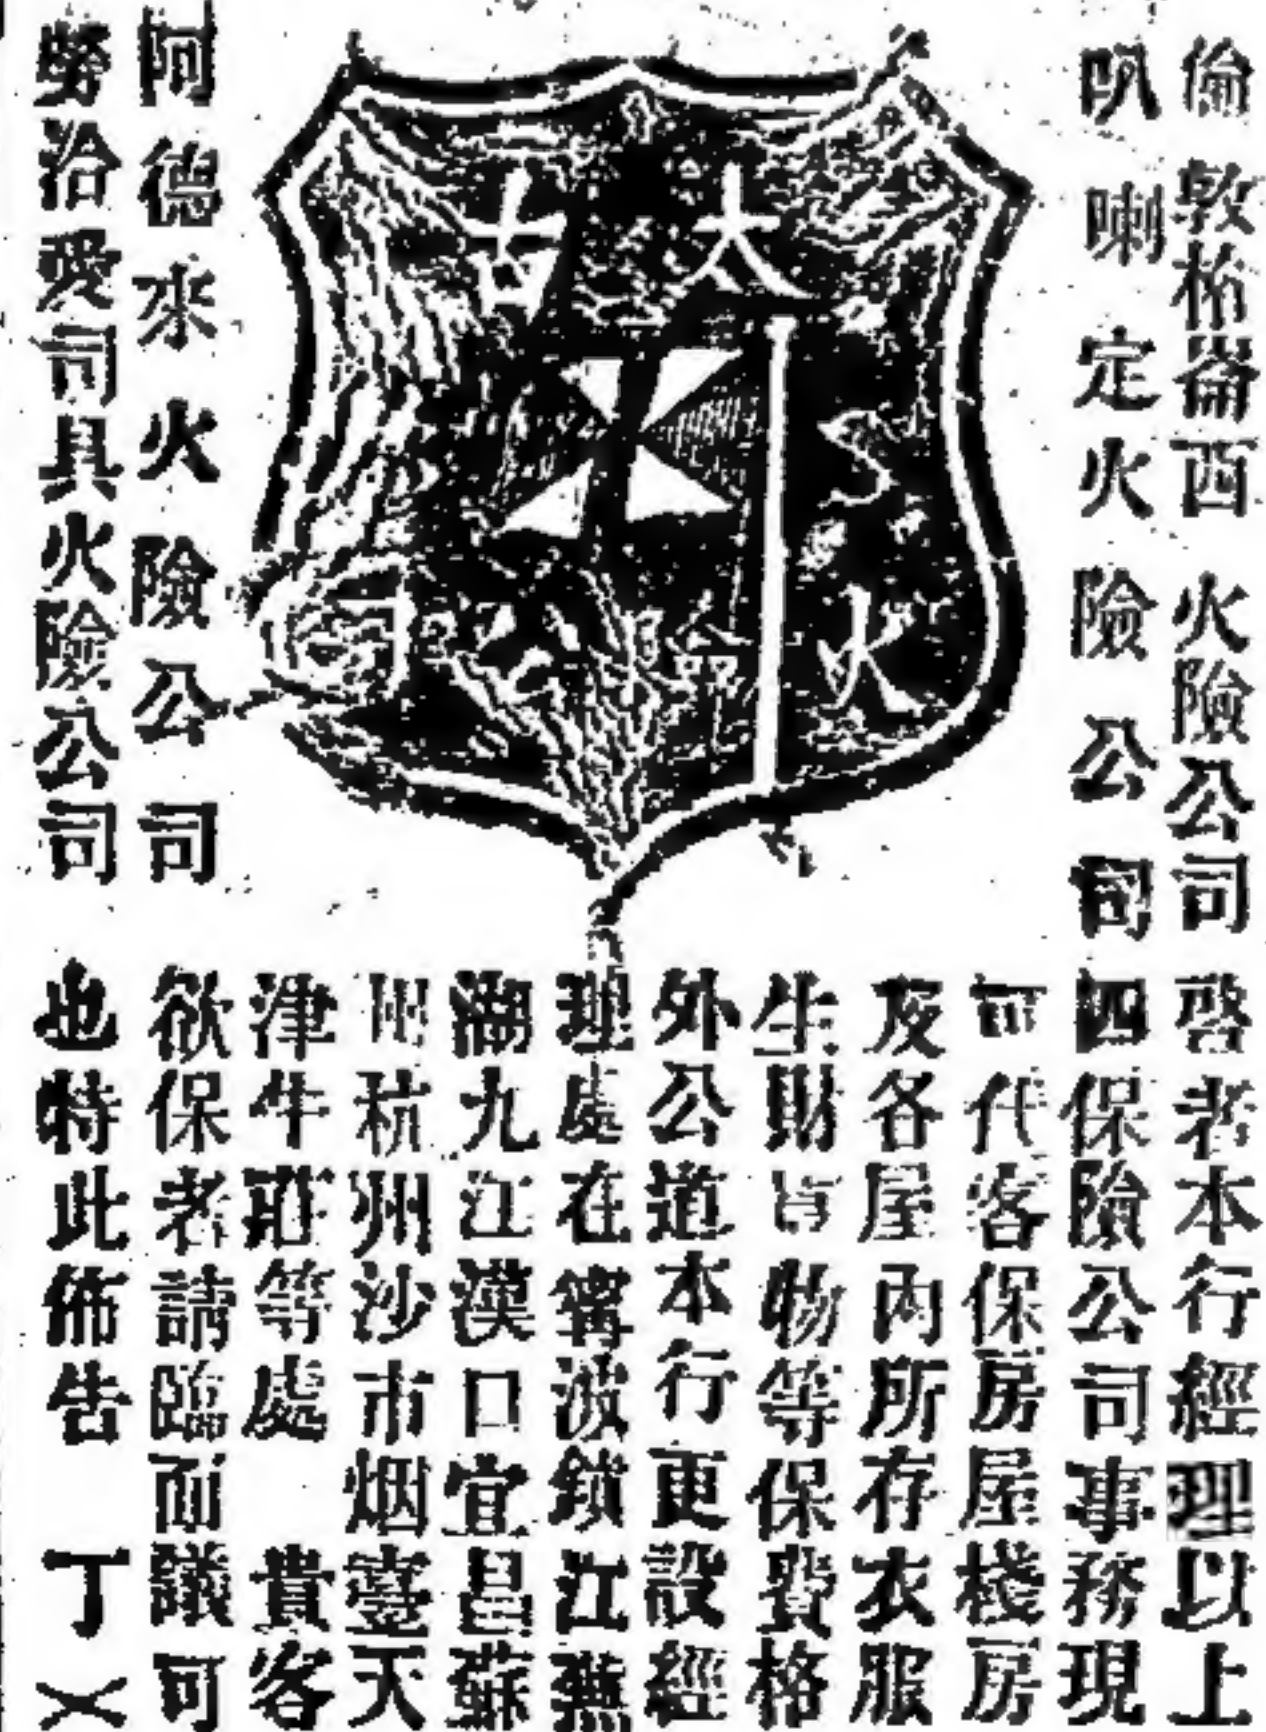 倫敦格崙西火險公司
叭喇定火險公司
太古
火險公司
阿德來火險公司
勞洽愛司具火險公司
啓者本行經理以上
四保險公司事務現
可代客保房屋棧房
及各屋內所存衣服
生財貨物等保費格
外公道本行更設經
理處在甯波鎮江蕪
湖九江漢口宜昌蘇
州杭州沙市烟臺天
津牛莊等處 貴客
欲保者請臨面議可
也特此佈告 丁